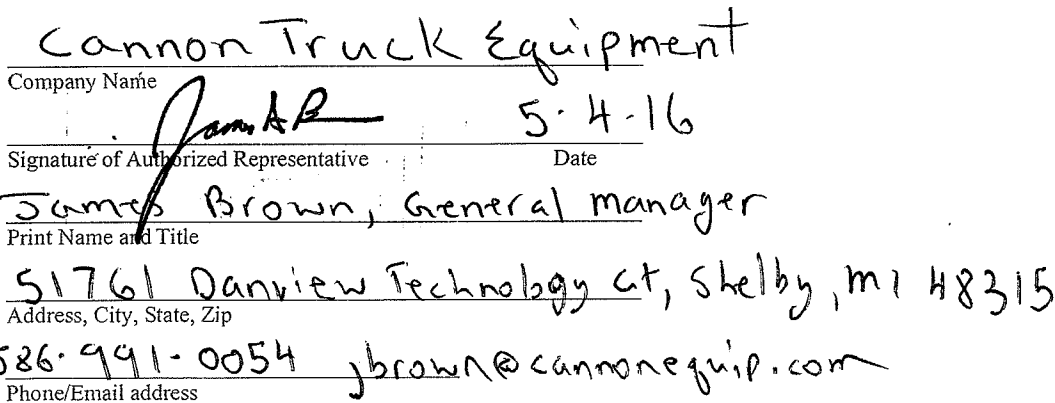 Cannon Truck Equipment
Company Name
James A B 5.4.16
Signature of Authorized Representative Date
James Brown, General manager
Print Name and Title
51761 Danview Technology Ct, Shelby, MI 48315
Address, City, State, Zip
586.991.0054 jbrown@cannonequip.com
Phone/Email address